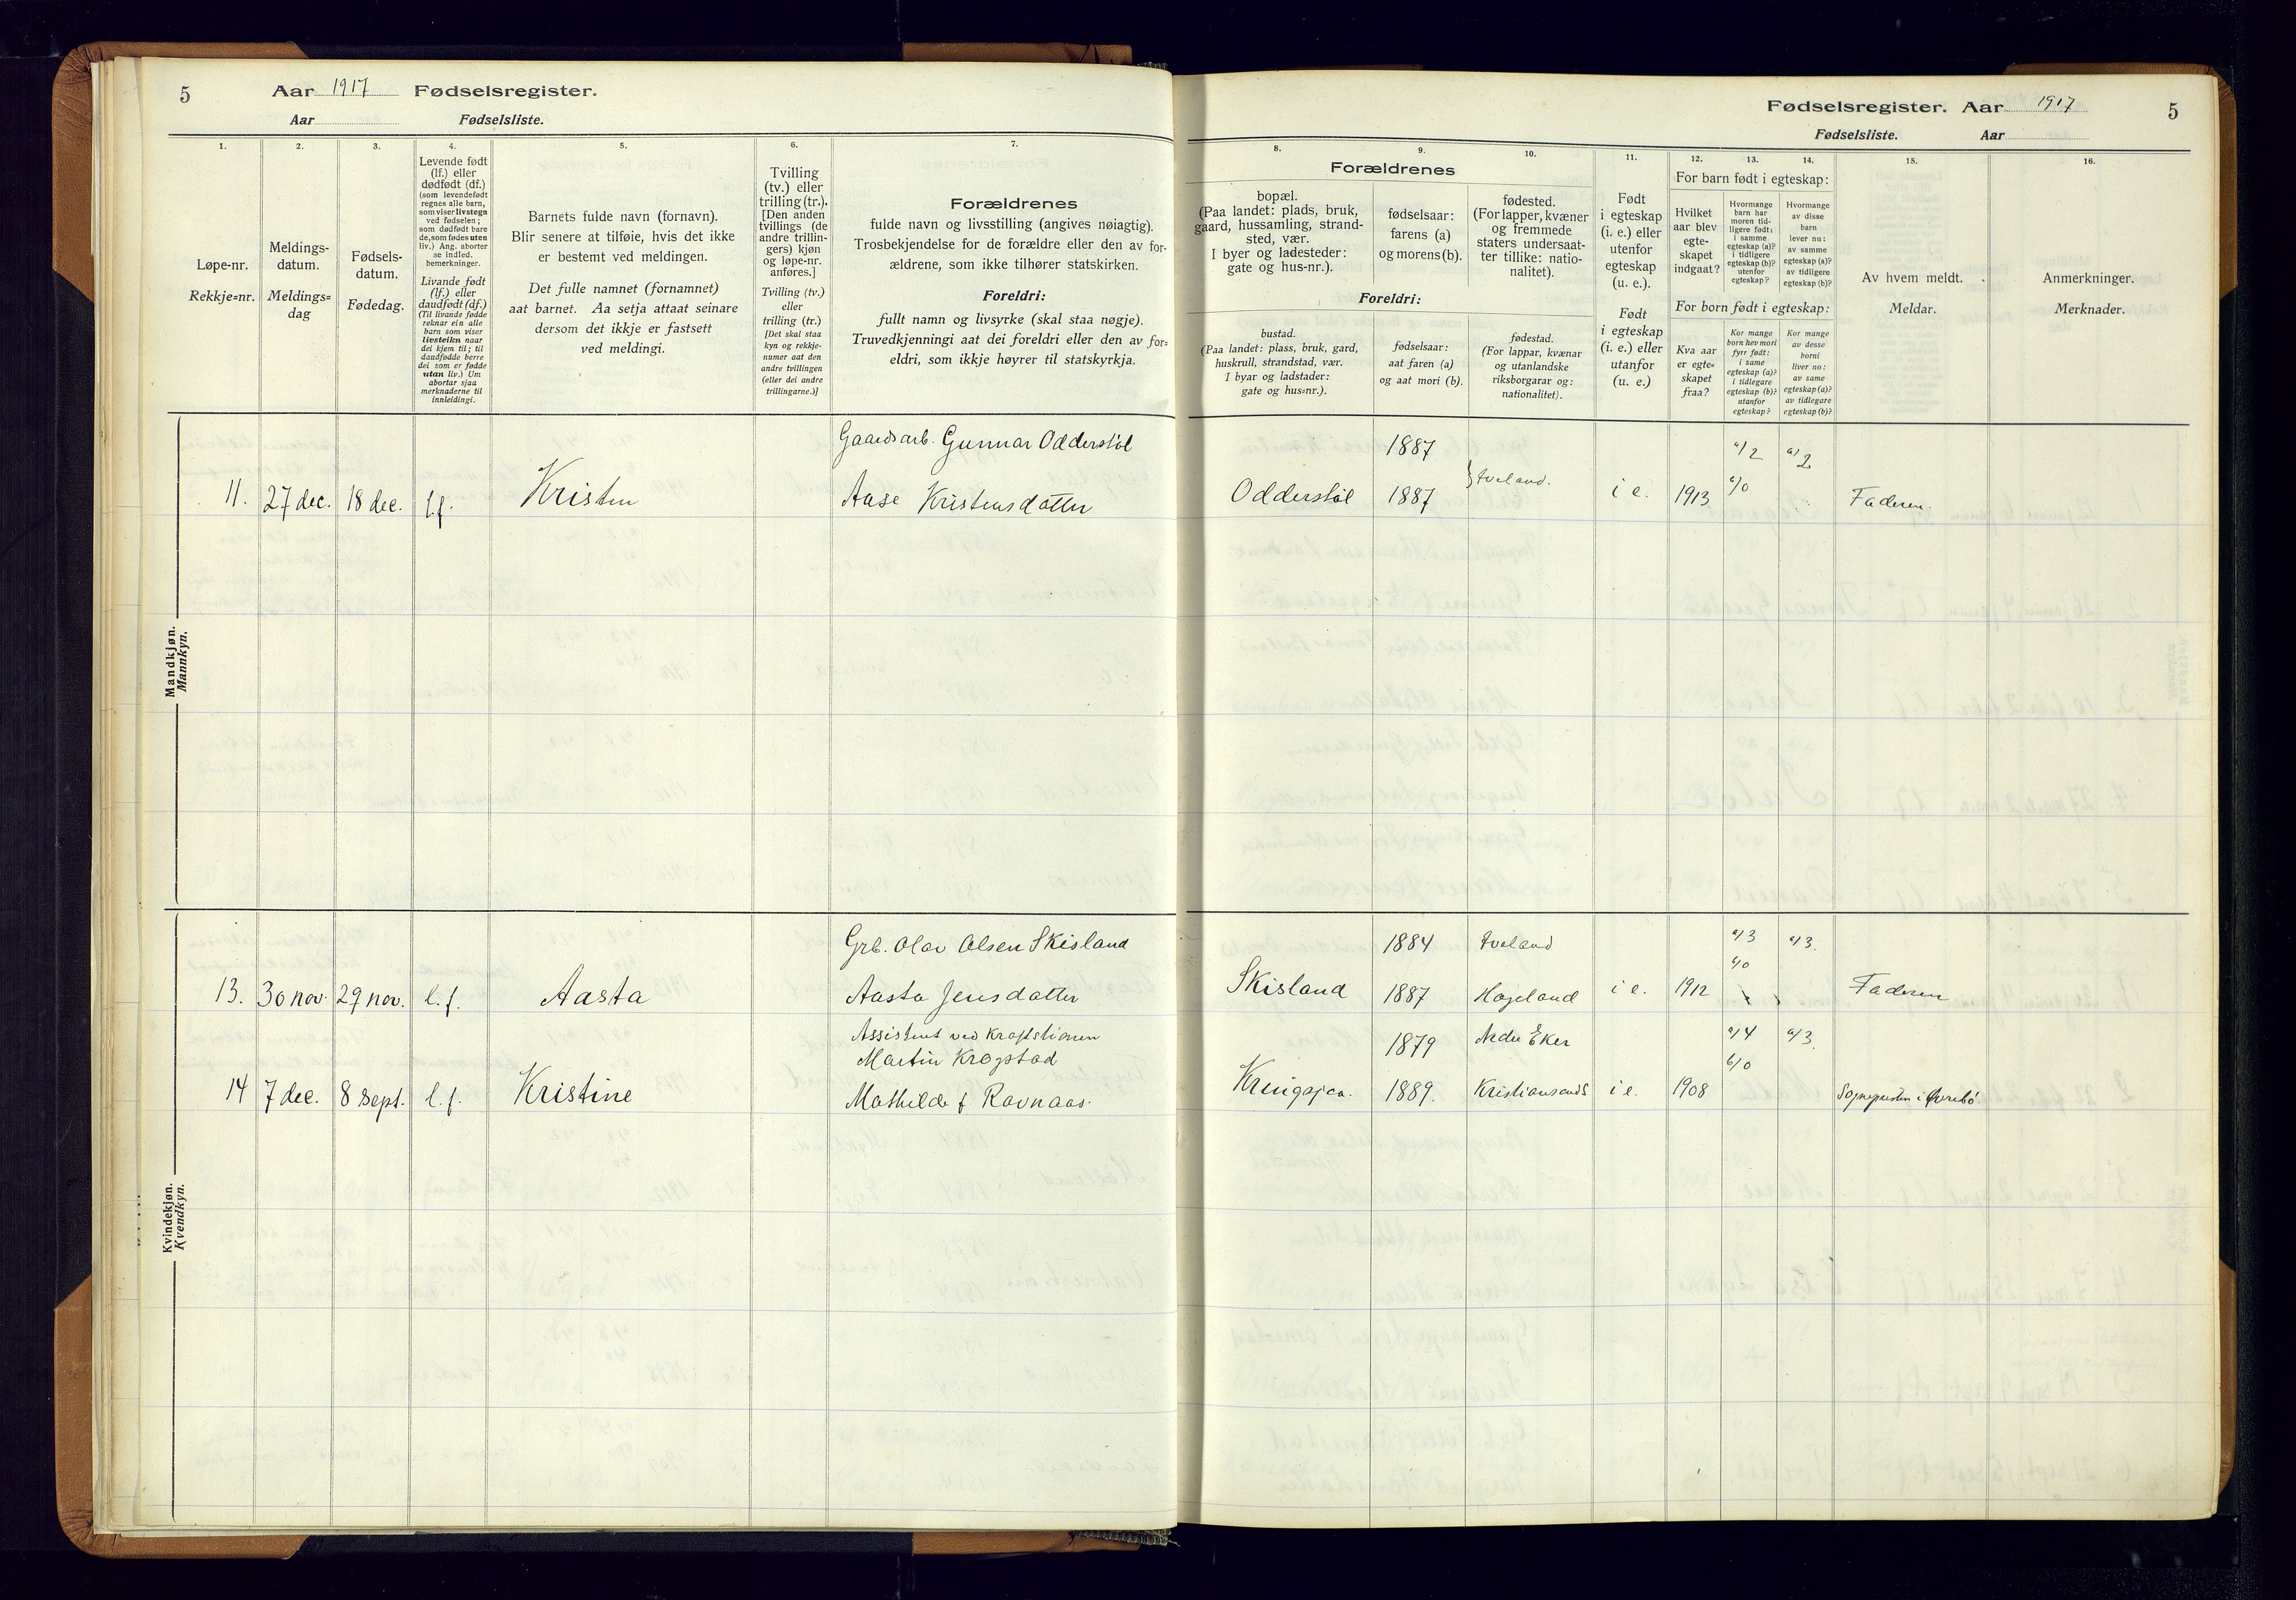 5
Aar 1917 Fødselsregister.
Aar Fødselsliste.
Fødselsregister. Aar 1917
5
Fødselsliste. Aar
1.
Løpe-nr.
Rekkje=nr.
2.
Meldings-
datum.
Meldings=
dag
3.
Fødsels-
datum.
Fødedag.
4.
Levende født
(lf.) eller
dødfødt (df.)
(som levendefødt
regnes alle barn,
som viser livstegn
ved fødselen;
som dødfødt bare
de, som fødes uten
liv.) Ang. aborter
se indled.
bemerkninger.
Livande født
(lf.) eller
daudfødt (df.)
(Til livande fødde
reknar ein alle
barn som viser
livsteikn naar
dei kjem til; til
daudfødde berre
dei som er fødde
utan liv.) Um
abortar sjaa
merknaderne til
innleidingi.
5.
Barnets fulde navn (fornavn).
Blir senere at tilføie, hvis det ikke
er bestemt ved meldingen.
Det fulle namnet (fornamnet)
aat barnet. Aa setja attaat seinare
dersom det ikkje er fastsett
ved meldingi.
6.
Tvilling
(tv.) eller
trilling (tr.).
[Den anden
tvillings (de
andre trillin-
gers) kjøn
og løpe-nr.
anføres.]
Tvilling (tv.)
eller
trilling (tr.)
[Det skal staa
kyn og rekkje-
numer aat den
andre tvillingen
(eller dei andre
trillingarne.)]
7.
Forældrenes
fulde navn og livsstilling (angives nøiagtig).
Trosbekjendelse for de forældre eller den av for-
ældrene, som ikke tilhører statskirken.
Foreldri:
fullt namn og livsyrke (skal staa nøgje).
Truvedkjenningi aat dei foreldri eller den av for=
eldri, som ikkje høyrer til statskyrkja.
8.
9.
10.
Forældrenes
bopæl.
(Paa landet: plads, bruk,
gaard, hussamling, strand-
sted, vær.
I byer og ladesteder:
gate og hus-nr.).
fødselsaar:
farens (a)
og morens (b).
fødested.
(For lapper, kvæner
og fremmede
staters undersaat-
ter tillike: natio-
nalitet).
Foreldri:
bustad.
(Paa landet: plass, bruk, gard,
huskrull, strandstad, vær.
I byar og ladstader:
gate og hus=nr.).
fødselsaar:
aat faren (a)
og aat mori (b).
fødestad.
(For lappar, kvænar
og utanlandske
riksborgarar og:
nationalitet).
11.
Født
i egteskap
(i. e.) eller
utenfor
egteskap
(u. e.).
Født
i egteskap
(i. e.) eller
utanfor
(u. e.)
12.
13.
14.
For barn født i egteskap:
Hvilket
aar blev
egte-
skapet
indgaat?
Hvormange
barn har
moren tid-
ligere født:
i samme
egteskap (a)?
i tidligere
egteskap (b)?
utenfor
egteskap?
Hvormange
av disse
barn
lever nu:
av samme
egteskap (a)?
av tidligere
egteskap (b)?
For born født i egteskap:
Kva aar
er egte=
skapet
fraa?
Kor mange
born hev mori
fyrr født:
i same
egteskap (a)?
i tidlegare
egteskap (b)?
utanfor
egteskap?
Kor mange
av desse
borni
liver no:
av same
egteskap (a)?
av tidlegare
egteskap (b)?
15.
Av hvem meldt.
Meldar.
16.
Anmerkninger.
Merknader.
Mandkjøn.
Mannkyn.
Gaardsarb. Gunnar Odderstøl 1887 a/2 a/2
11. 27 dec. 18 dec. l.f. Kristen Aase Kristensdatter Odderstøl 1887 } Iveland. i e. 1913 b/0 Faderen.
Kvindekjøn.
Kvendkyn.
Grb. Olav Olsen Skisland 1884 Iveland a/3 a/3.
b/0
13. 30 nov. 29 nov. l.f. Aasta Aasta Jensdatter Skisland 1887 Hægeland i e. 1912 Faderen
Assistent ved Kraftstionen
Martin Krogstad 1879 Nedre Eker a/4 a/3.
b/0
14 7 dec. 8 Sept. l.f. Kristine Mathilde f Ravnaas. Kringsjaa. 1889. Kristiansands i e. 1908 Sognepresten i Øvrebö.